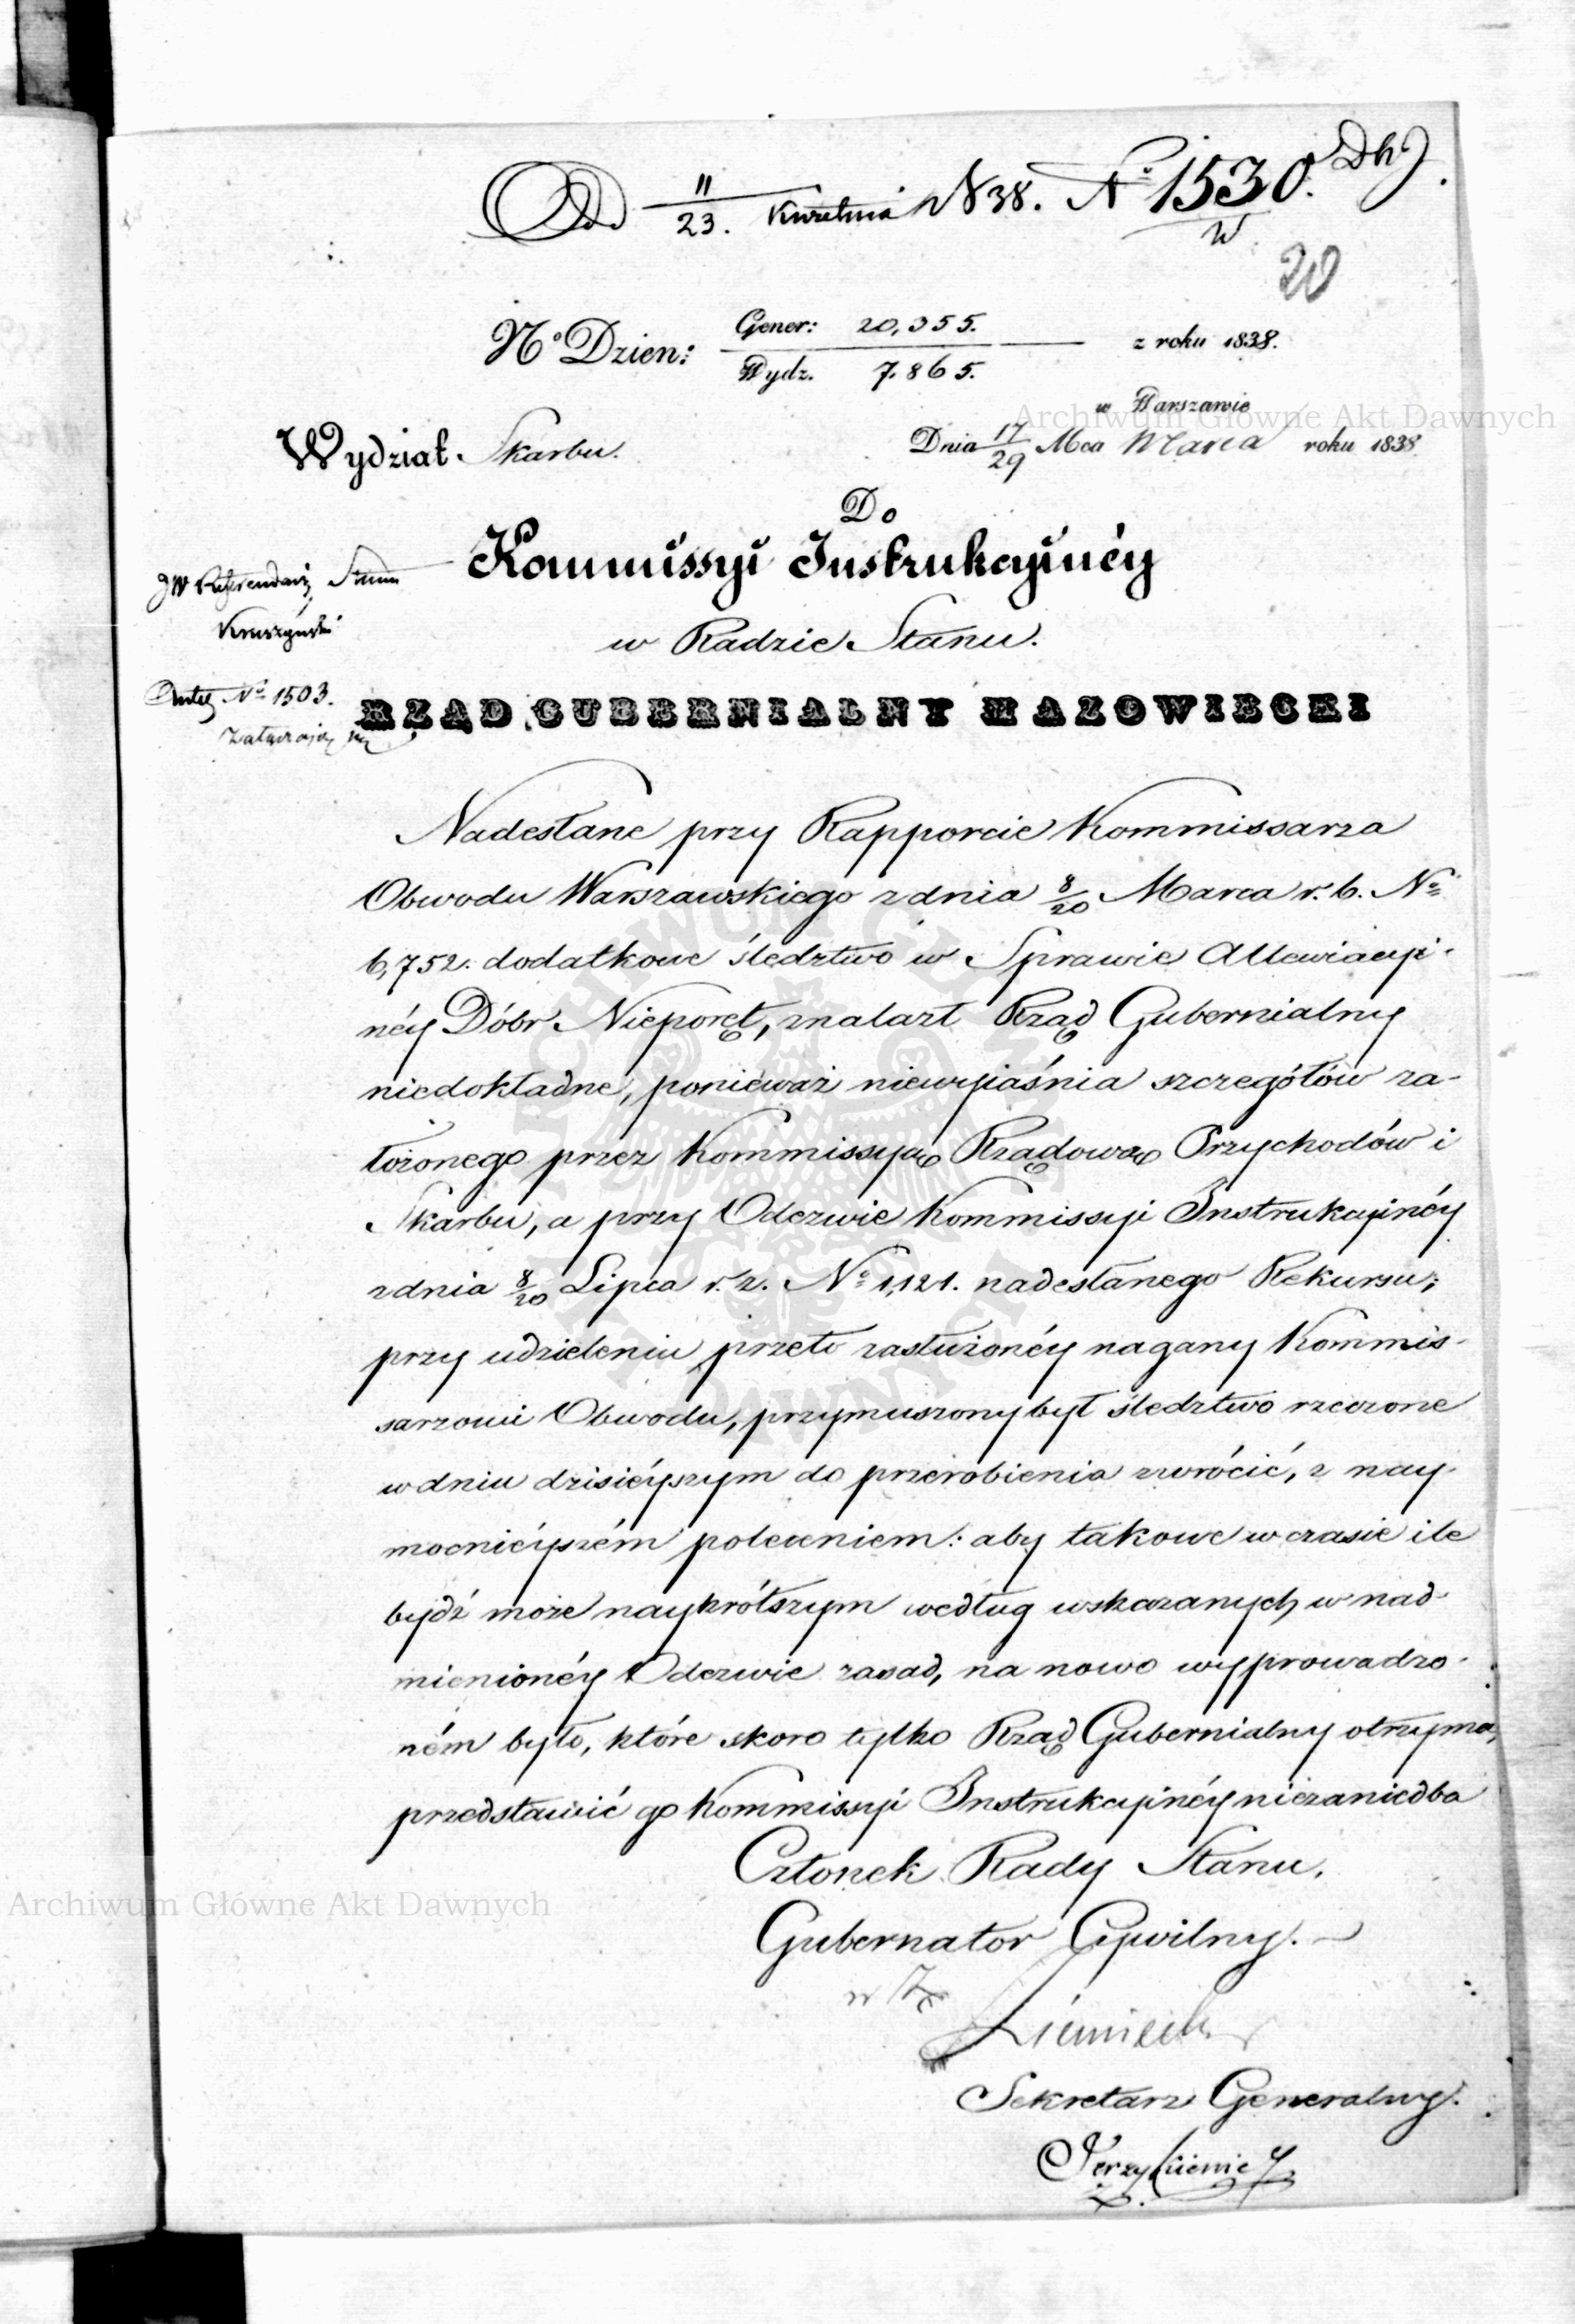 Odd 11/23. Kwietnia 838. No 1530. Dhj.
W
20
No Dzien: Gener: 20,355. z roku 1838.
Wydz. 7.865.
w Warszawie
Wydział Skarbu. Dnia 17/29 Mca Marca roku 1838
Do
Kommissyi Instrukcyinéy
JW Referendarz Stanu
Kruszyński
w Radzie Stanu.
No 1503.
RZĄD GUBERNIALNY MAZOWIECKI
Nadesłane przy Rapporcie Kommissarza
Obwodu Warszawskiego z dnia 8/20 Marca r. b. No
6,752. dodatkowe śledztwo w Sprawie Allewiacyi-
néy Dóbr Nieporęt, znalazł Rząd Gubernialny
niedokładne, ponieważ niewyiaśnia szczegółów za-
łożonego przez Kommissyą Rządową Przychodów i
Skarbu, a przy Odezwie Kommissyi Instrukcyinéy
z dnia 8/20 Lipca r. z. No 1,121. nadesłanego Rekursu;
przy udzieleniu przeto zasłużonéy nagany Kommis-
sarzowi Obwodu, przymuszony był śledztwo rzeczone
w dniu dzisiéyszym do przerobienia zwrócić, z nay-
mocniéyszém poleceniem: aby takowe w czasie ile
bydź może naykrótszym według wskazanych w nad-
mienionéy Odezwie zasad, na nowo wyprowadzo-
ném było, które skoro tylko Rząd Gubernialny otrzyma,
przedstawić go Kommissyi Instrukcyinéy niezaniedba
Członek Rady Stanu,
Gubernator Cywilny.
w Z
Sekretarz Generalny.
Archiwum Główne Akt Dawnych
Archiwum Główne Akt Dawnych
ARCHIWUM GŁÓWNE AKT DAWNYCH